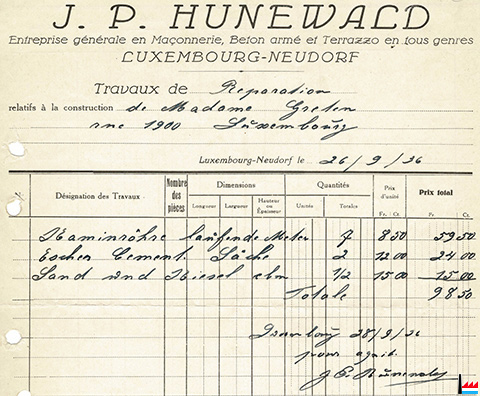 J. P. HUNEWALD
Entreprise générale en Maçonnerie, Béton armé et Terrazzo en tous genres
LUXEMBOURG-NEUDORF
Travaux de Reparation
relatifs à la construction de Madame Greten
rue 1900 Luxembourg
Luxembourg-Neudorf le 26/9/36
Désignation des Travaux Nombre des pièces Dimensions Quantités Prix d'unité Prix total
Longueur Largeur Hauteur ou Epaisseur Unités Totales Fr. Ct. Fr. Ct.
Kaminröhre laufende Meter 7 8 50 59 50
Escher Cement Säcke 2 12 00 24 00
Sand und Kiesel cbm 1/2 15 00 15 00
Totale 98 50
Luxembourg 28/9/36
pour aquit
J. P. Hünewald